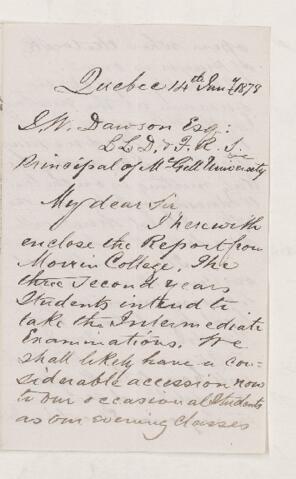 Quebec 14th Jany 1878
J. W. Dawson Esq:
L L D. & F. R. S.
&c
Principal of McGill University
My dear Sir
I herewith
enclose the Report from
Morrin College. The
three second years
Students intend to
take the Intermediate
Examinations. We
shall likely have a con-
siderable accession now
to our occasional Students
as our evening classes